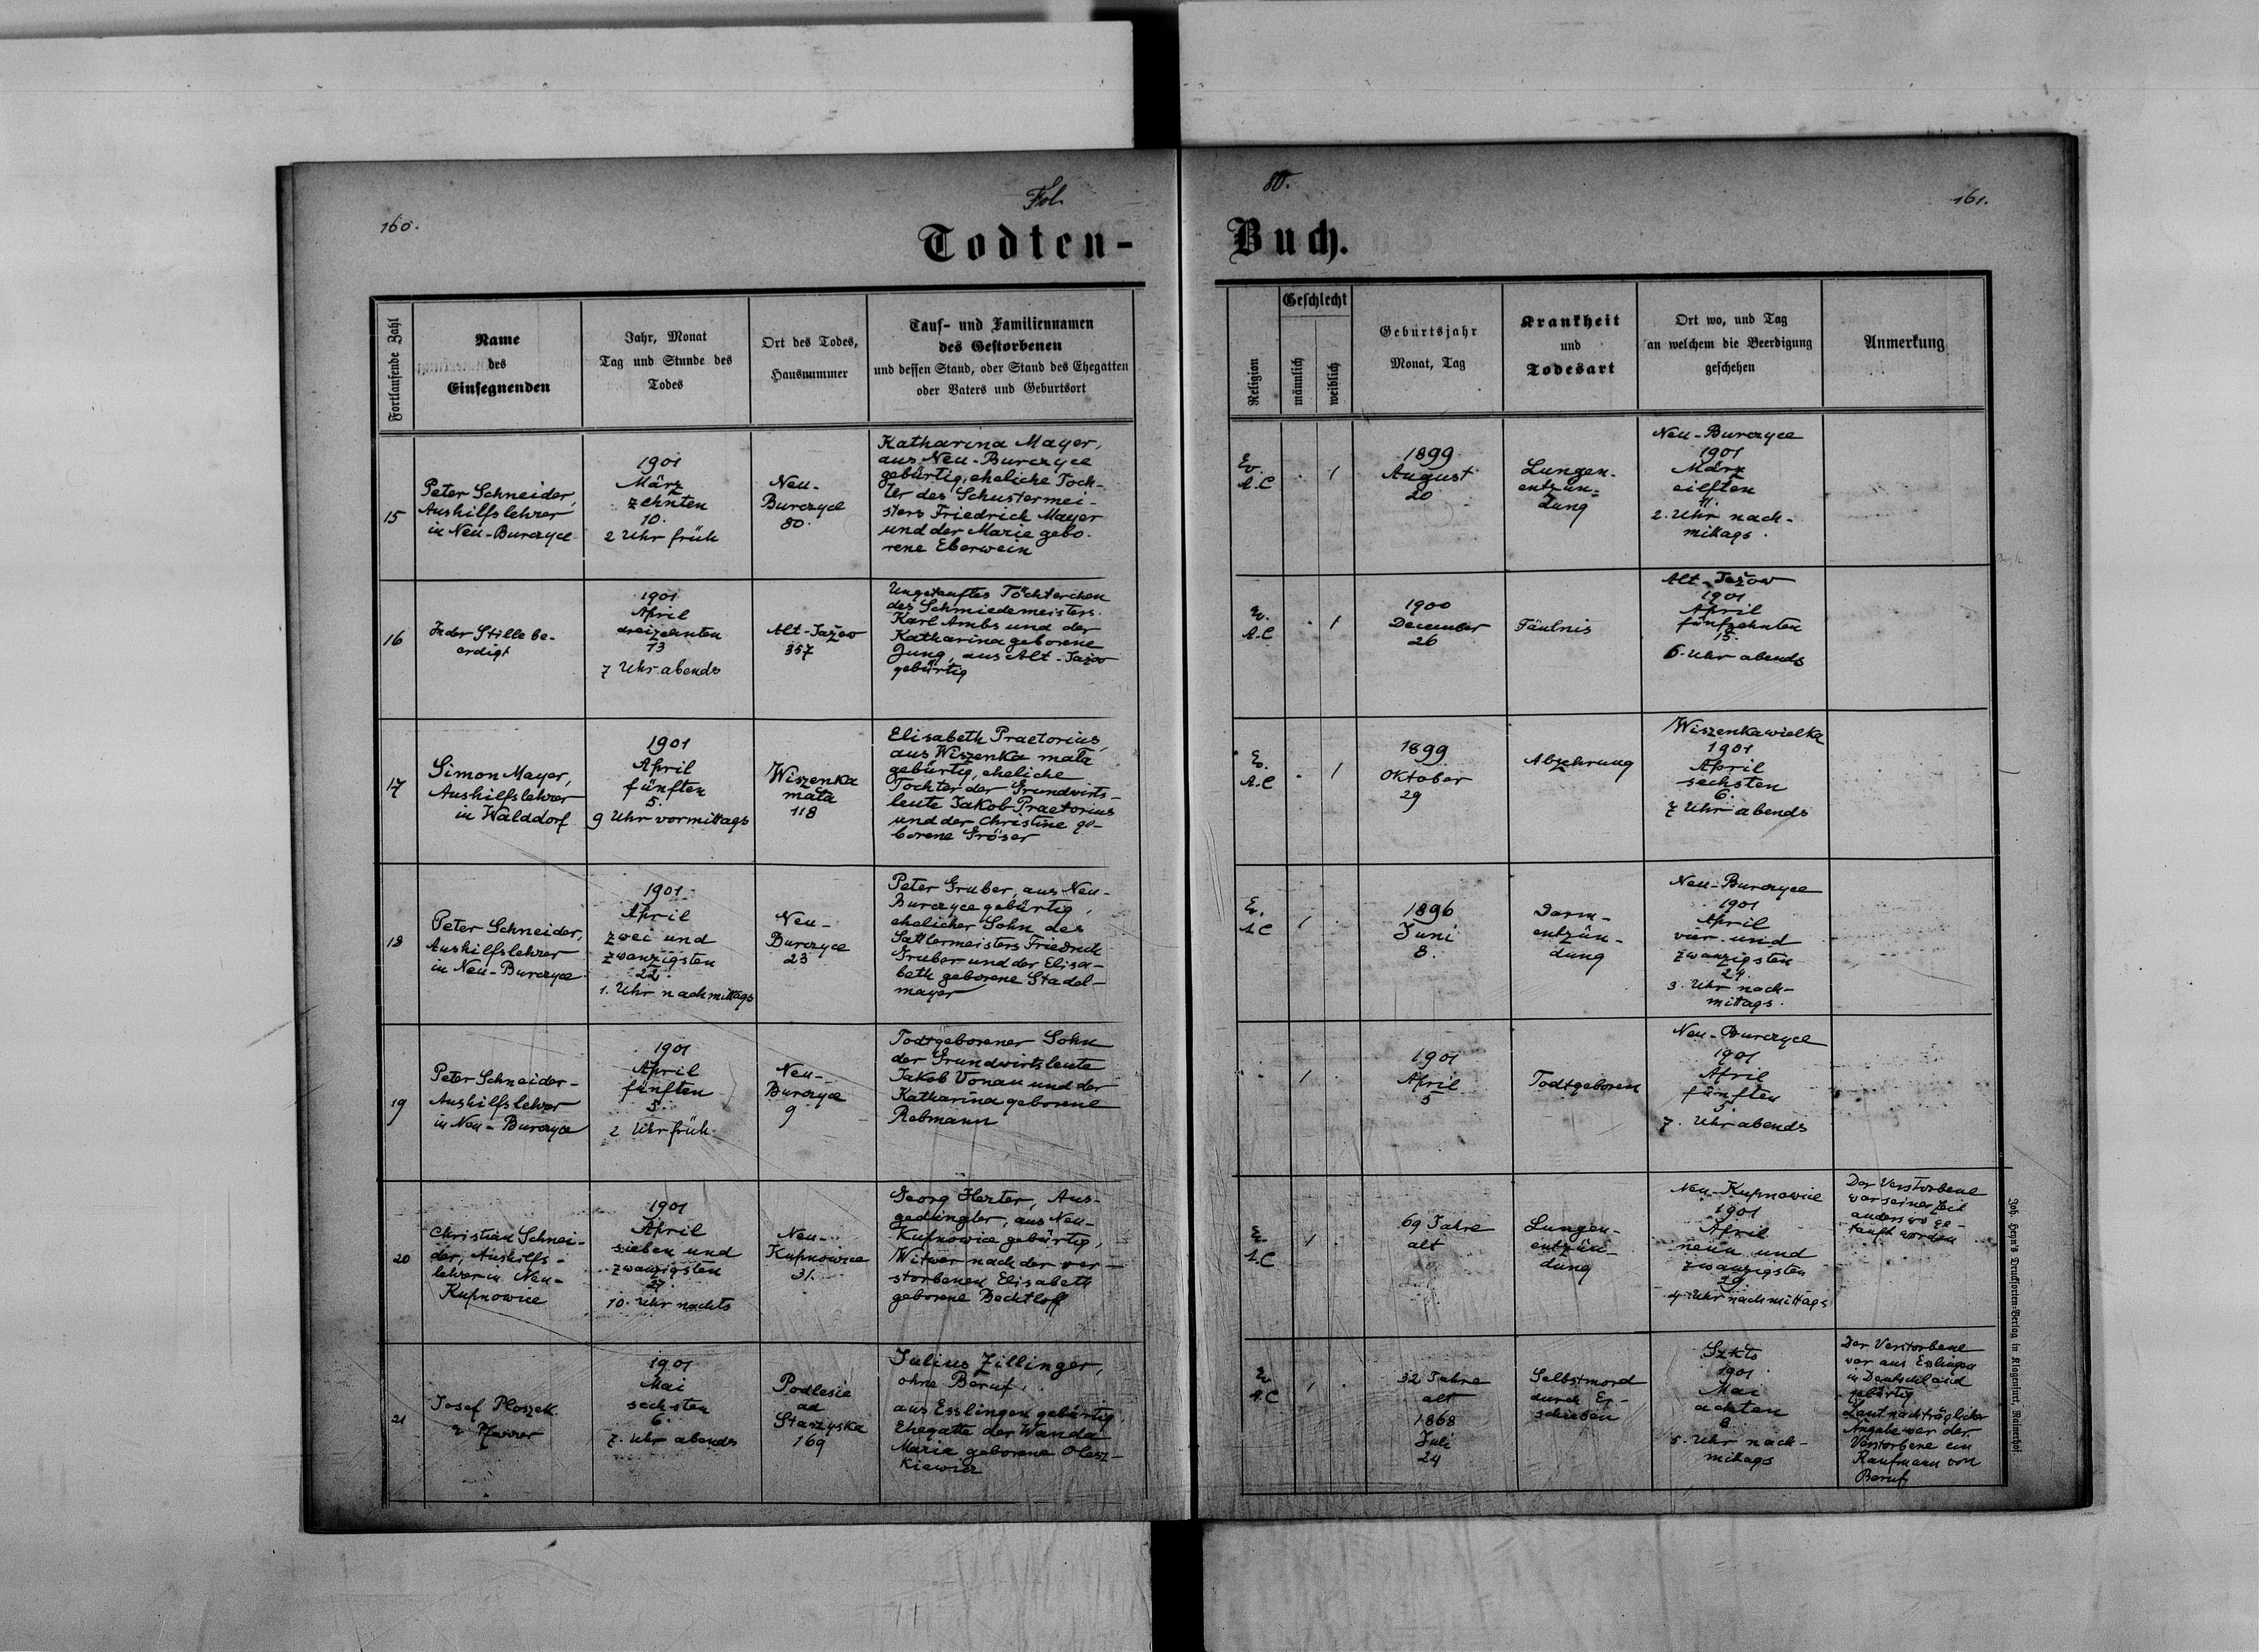 160.
Fol.
80.
161.
Todten-
Buch.
Fortlaufende Zahl
Name
des
Einsegnenden
Jahr, Monat
Tag und Stunde des
Todes
Ort des Todes,
Hausnummer
Tauf- und Familiennamen
des Gestorbenen
und dessen Stand, oder Stand des Ehegatten
oder Vaters und Geburtsort
Religion
Geschlecht
männlich
weiblich
Geburtsjahr
Monat, Tag
Krankheit
und
Todesart
Ort wo, und Tag
an welchem die Beerdigung
geschehen
Anmerkung
15
Peter Schneider,
Aushilfslehrer
in Neu-Burczyce
1901
März
zehnten
10.
2 Uhr früh
Neu-
Burczyce
80.
Katharina Mayer,
aus Neu-Burczyce
gebürtig, eheliche Toch-
ter des Schustermei-
sters Friedrich Mayer
und der Marie gebo-
rene Eberwein
Ev.
A.C
1
1899
August
20
Lungen-
entzün-
dung
Neu-Burczyce
1901
März
eilften
11.
2. Uhr nach-
mittags.
16
In der Stille be-
erdigt
1901
April
dreizehnten
13
7 Uhr abends
Alt-Jažow
357
Ungetauftes Töchterchen
des Schmiedemeisters
Karl Ambs und der
Katharina geborene
Jung, aus Alt-Jažow
gebürtig
Ev.
A.C
1
1900
December
26
Fäulnis
Alt-Jažow
1901
April
fünfzehnten
15.
6. Uhr abends
17
Simon Mayer,
Aushilfslehrer
in Walddorf
1901
April
fünften
5.
9 Uhr vormittags
Wiszenka
mała
118
Elisabeth Praetorius,
aus Wiszenka mała
gebürtig, eheliche
Tochter der Grundwirts-
leute Jakob Praetorius
und der Christine ge-
borene Gröser
Ev.
A.C
1
1899
Oktober
29
Abzehrung
Wiszenka wielka
1901
April
sechsten
6.
7 Uhr abends
18
Peter Schneider,
Aushilfslehrer
in Neu-Burczyce
1901
April
zwei und
zwanzigsten
22.
1. Uhr nachmittags
Neu-
Burczyce
23
Peter Gruber, aus Neu-
Burczyce gebürtig,
ehelicher Sohn des
Sattlermeisters Friedrich
Gruber und der Elisa-
beth geborene Stadel-
mayer
Ev.
A.C
1
1896
Juni
8.
Darm-
entzün-
dung
Neu-Burczyce
1901
April
vier und
zwanzigsten
24.
3. Uhr nach-
mittags.
19
Peter Schneider-
Aushilfslehrer
in Neu-Burczyce
1901
April
fünften
5.
2 Uhr früh
Neu-
Burczyce
9
Todtgeborener Sohn
der Grundwirtsleute
Jakob Vonau und der
Katharina geborene
Rebmann
1
1901
April
5
Todtgeboren
Neu-Burczyce
1901
April
fünften
5.
7. Uhr abends
20
Christian Schnei-
der, Aushilfs-
lehrer in Neu-
Kupnowice
1901
April
sieben und
zwanzigsten
27.
10. Uhr nachts
Neu-
Kupnowice
31.
Georg Harter, Aus-
gedingler, aus Neu-
Kupnowice gebürtig,
Witwer nach der ver-
storbenen Elisabeth
geborene Bechtloff
Ev.
A.C
1
69 Jahre
alt
Lungen-
entzün-
dung
Neu-Kupnowice
1901
April
neun und
zwanzigsten
29.
4 Uhr nachmittags
Der Verstorbene
war seiner Zeit
anders wo ge-
tauft worden
21
Josef Ploszek
Pfarrer
1901
Mai
sechsten
6.
7. Uhr abends
Podlesie
ad
Starzyska
169
Julius Zillinger,
ohne Beruf,
aus Esslingen gebürtig,
Ehegatte der Wanda
Maria geborene Olesz-
kiewicz
Ev.
A.C
1
32 Jahre
alt
1868
Juli
24
Selbstmord
durch Er-
schießen
Szkło
1901
Mai
achten
8.
5. Uhr nach-
mittags
Der Verstorbene
war aus Esslingen
in Deutschland
gebürtig.
Laut nachträglicher
Angabe war der
Verstorbene ein
Kaufmann von
Beruf
Joh. Heyn's Drucksorten-Verlag in Klagenfurt, Rainerhof.